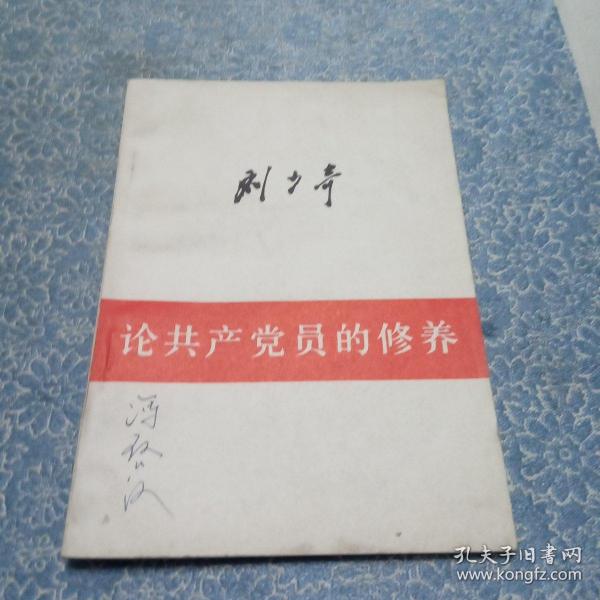 刘少奇
论共产党员的修养
孔夫子旧书网
www.kongfz.com